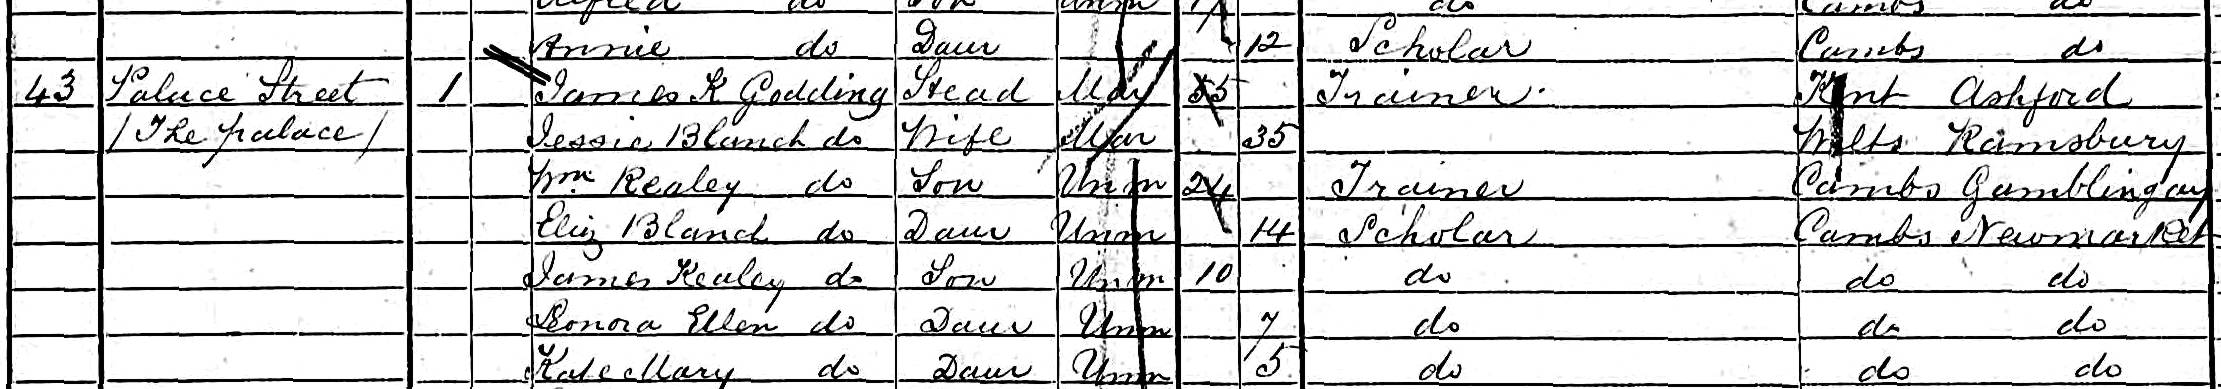 Alfred do Son Unm do Cambs do
Annie do Daur 12 Scholar Cambs do
43 Palace Street 1 James K Godding Head Mar 55 Trainer. Kent Ashford
/The palace/ Jessie Blanch do Wife Mar 35 Wilts Ramsbury
Wm Kealey do Son Unm 24 Trainer Cambs Gamblingay
Eliz Blanch do Daur Unm 14 Scholar Cambs Newmarket
James Kealey do Son Unm 10 do do do
Leonora Ellen do Daur Unm 7 do do do
Kate Mary do Daur Unm 5 do do do